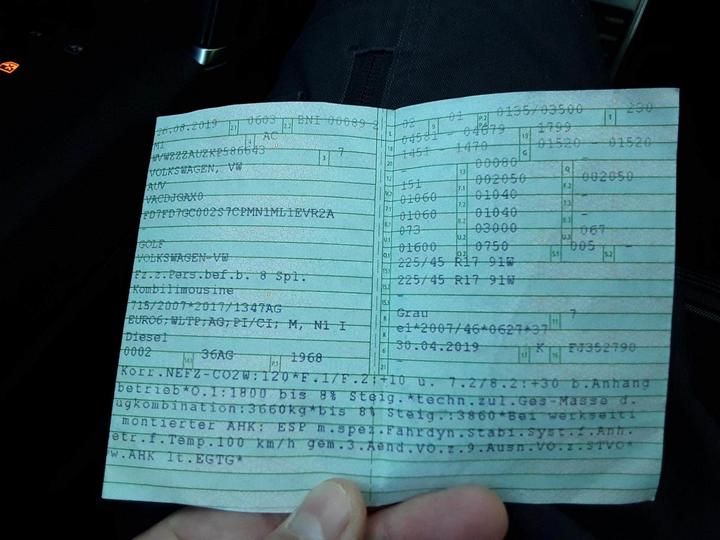 26.08.2019 2.1 0603 2.2 BNI 00089 2
M1 4 AC
WVWZZZAUZKP586643 3 7
VOLKSWAGEN, VW
AUV
VACDJGAX0
FD7FD7GC002S7CPMN1ML1EVR2A
-
GOLF
VOLKSWAGEN-VW
Fz.z.Pers.bef.b. 8 Spl.
Kombilimousine
715/2007*2017/1347AG
EURO6;WLTP;AG;PI/CI; M, N1 I
Diesel
0002 14.1 36AG P.1 1968
02 9 01 P.2 P.4 0135/03500 T 230
04581 - 04679 1799
1451 - 1470 G 01520 - 01520
- 00080 -
151 002050 002050
01060 01040 -
01060 01040 -
073 03000 067
01600 0750 S.1 005 S.2 -
225/45 R17 91W
225/45 R17 91W
-
Grau 11 7
e1*2007/46*0627*37
30.04.2019 17 K 16 FJ352790
-
Korr.NEFZ-CO2W:120*F.1/F.2:+10 u. 7.2/8.2:+30 b.Anhang
betrieb*O.1:1800 bis 8% Steig.*techn.zul.Ges-Masse d.
ugkombination:3660kg*bis 8% Steig.:3860*Bei werkseiti
montierter AHK: ESP m.spez.Fahrdyn.Stabi.Syst.f.Anh.
etr.f.Temp.100 km/h gem.3.Aend.VO.z.9.Ausn.VO.z.STVO*
w.AHK lt.EGTG*